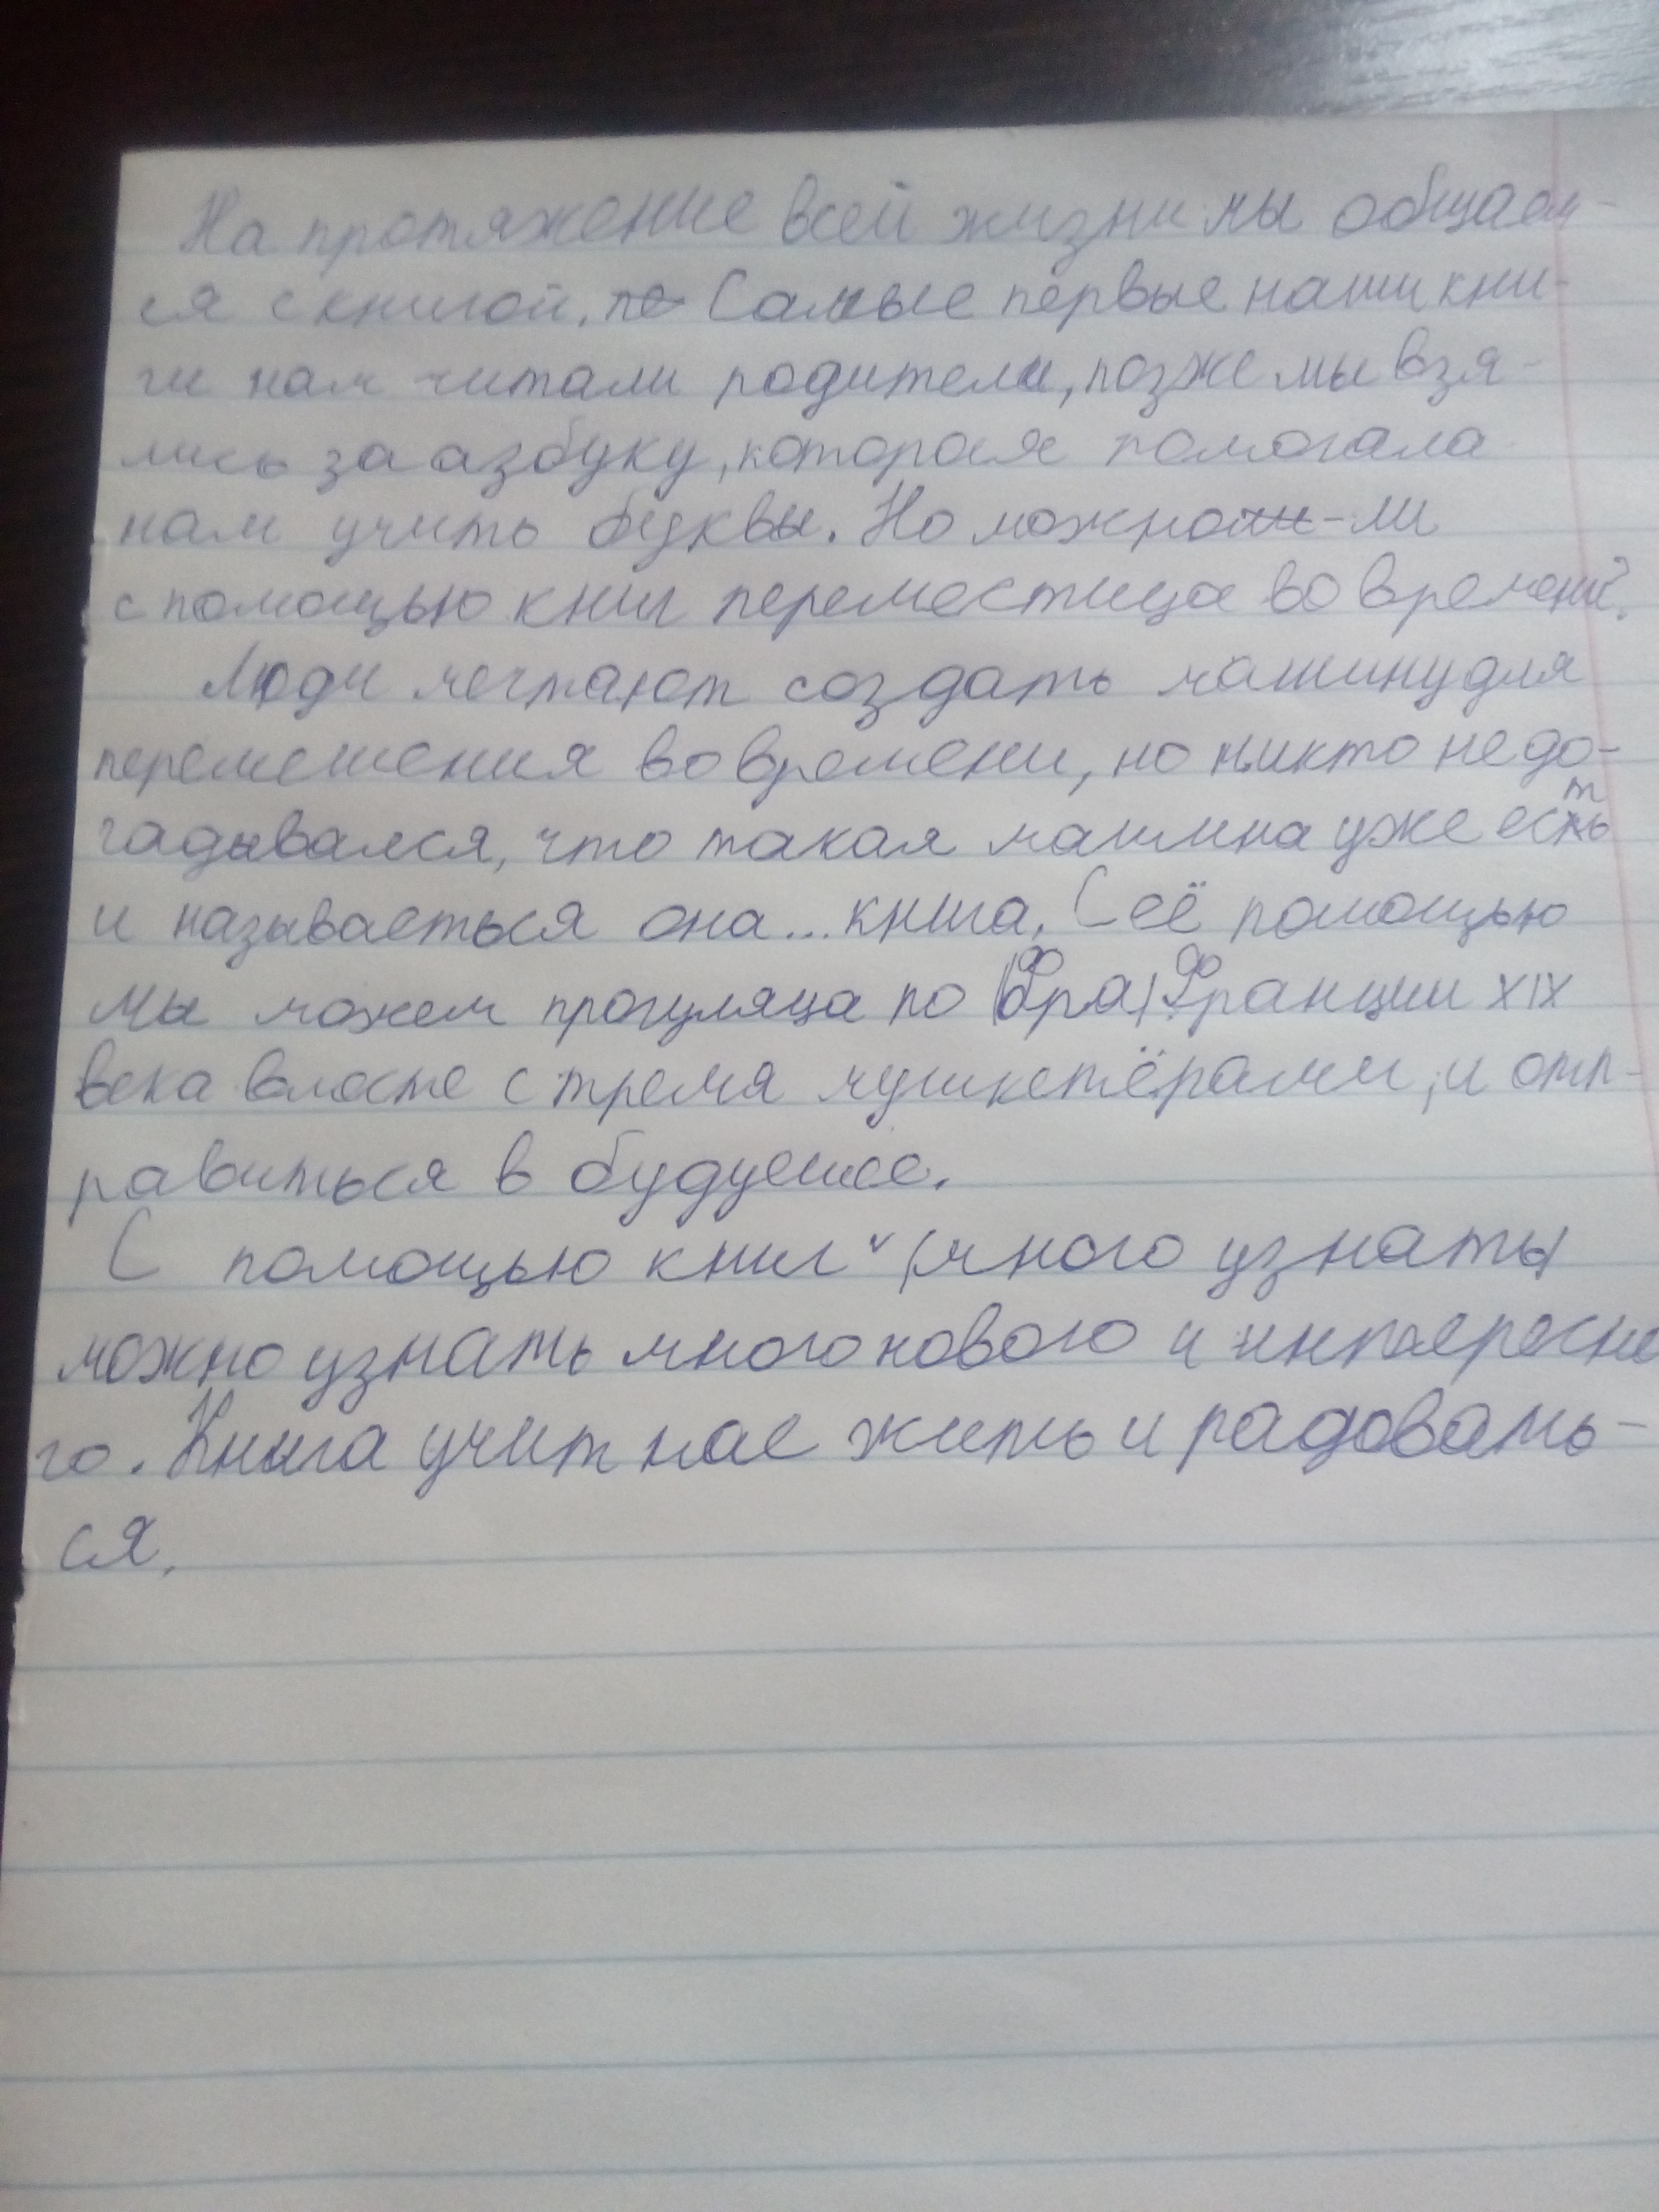 На протяжение всей жизни мы общаем-
ся с книгой. по Самые первые наши кни-
ги нам читали родители, позже мы взя-
лись за азбуку, которая помогала
нам учить буквы. Но можноли-ли
с помощью книг переместица во времени?
Люди мечтают создать машину для
перемешения во времени, но никто не до-
гадывался, что такая машина уже есть
и называеться она... книга. С её помощью
мы можем прогуляца по (Фра) Франции XIX
века вместе с тремя мушкетёрами, и отп-
равиться в будуешее.
С помощью книг (много узнать)
можно узнать много нового и интересно
го. Книга учит нас жить и радовать-
ся.